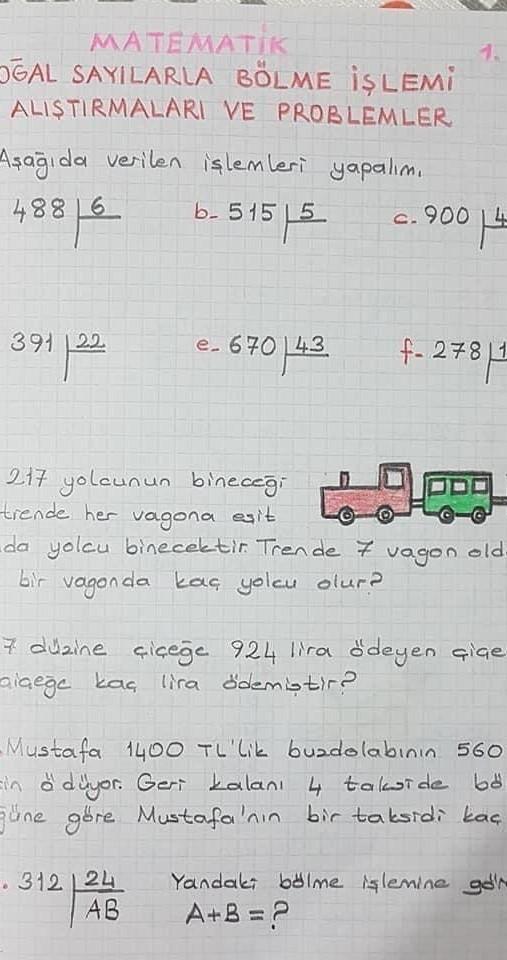 MATEMATİK
1.
OĞAL SAYILARLA BÖLME İŞLEMİ
ALIŞTIRMALARI VE PROBLEMLER
Aşağıda verilen işlemleri yapalım.
488 6 b- 515 5 c- 900 4
391 22 e- 670 43 f- 278 1
217 yolcunun bineceği
trende her vagona eşit
da yolcu binecektir. Trende 7 vagon old
bir vagonda kaç yolcu olur?
7 düzine çiçeğe 924 lira ödeyen çiçe
çiçeğe kaç lira ödemiştir?
Mustafa 1400 TL'lik buzdolabının 560
in ödüyor. Geri kalanı 4 takside bö
ğüne göre Mustafa'nın bir taksidi kaç
. 312 24 Yandaki bölme işlemine gör
AB A+B=?